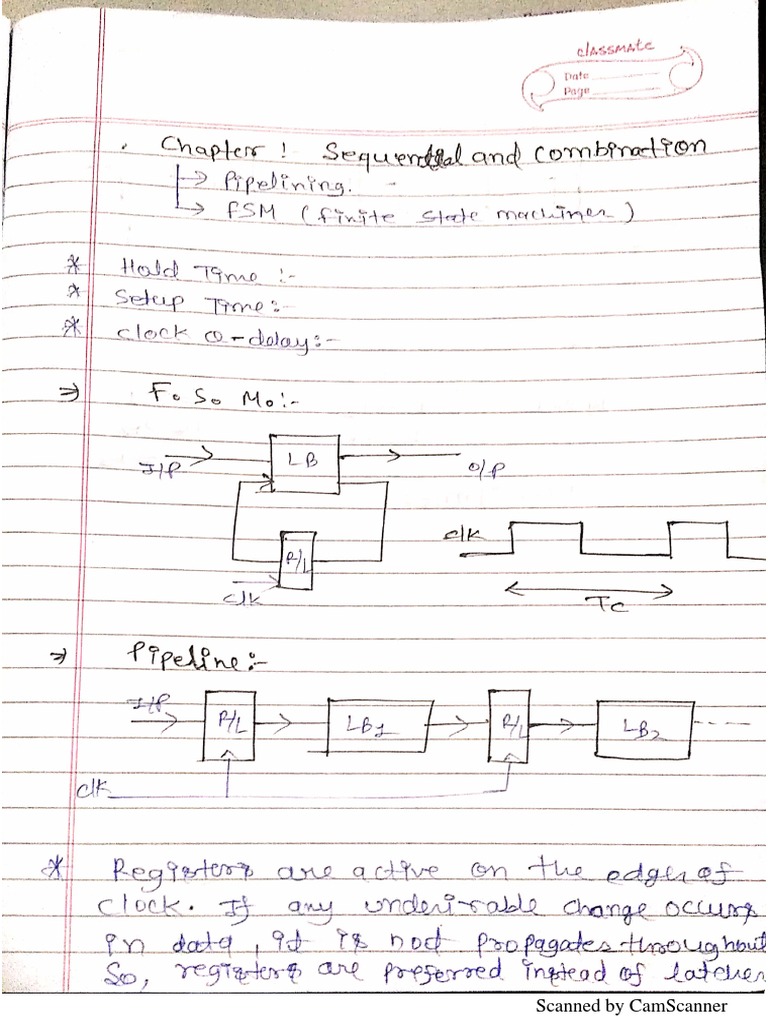 classmate
Date
Page
Chapter : Sequential and Combination
→ Pipelining.
→ FSM (finite state machines)
* Hold Time :-
* Setup Time:-
* Clock Q-delay:-
⇒ F.S.M.:-
I/P → LB → O/P
R/L
clk
clk
Tc
⇒ Pipeline:-
I/P → R/L → LB1 → R/L → LB2 ----
clk
* Registers are active on the edges of
clock. If any undesirable change occurs
in data, it is not propagates throughout
So, registers are preferred instead of latches
Scanned by CamScanner